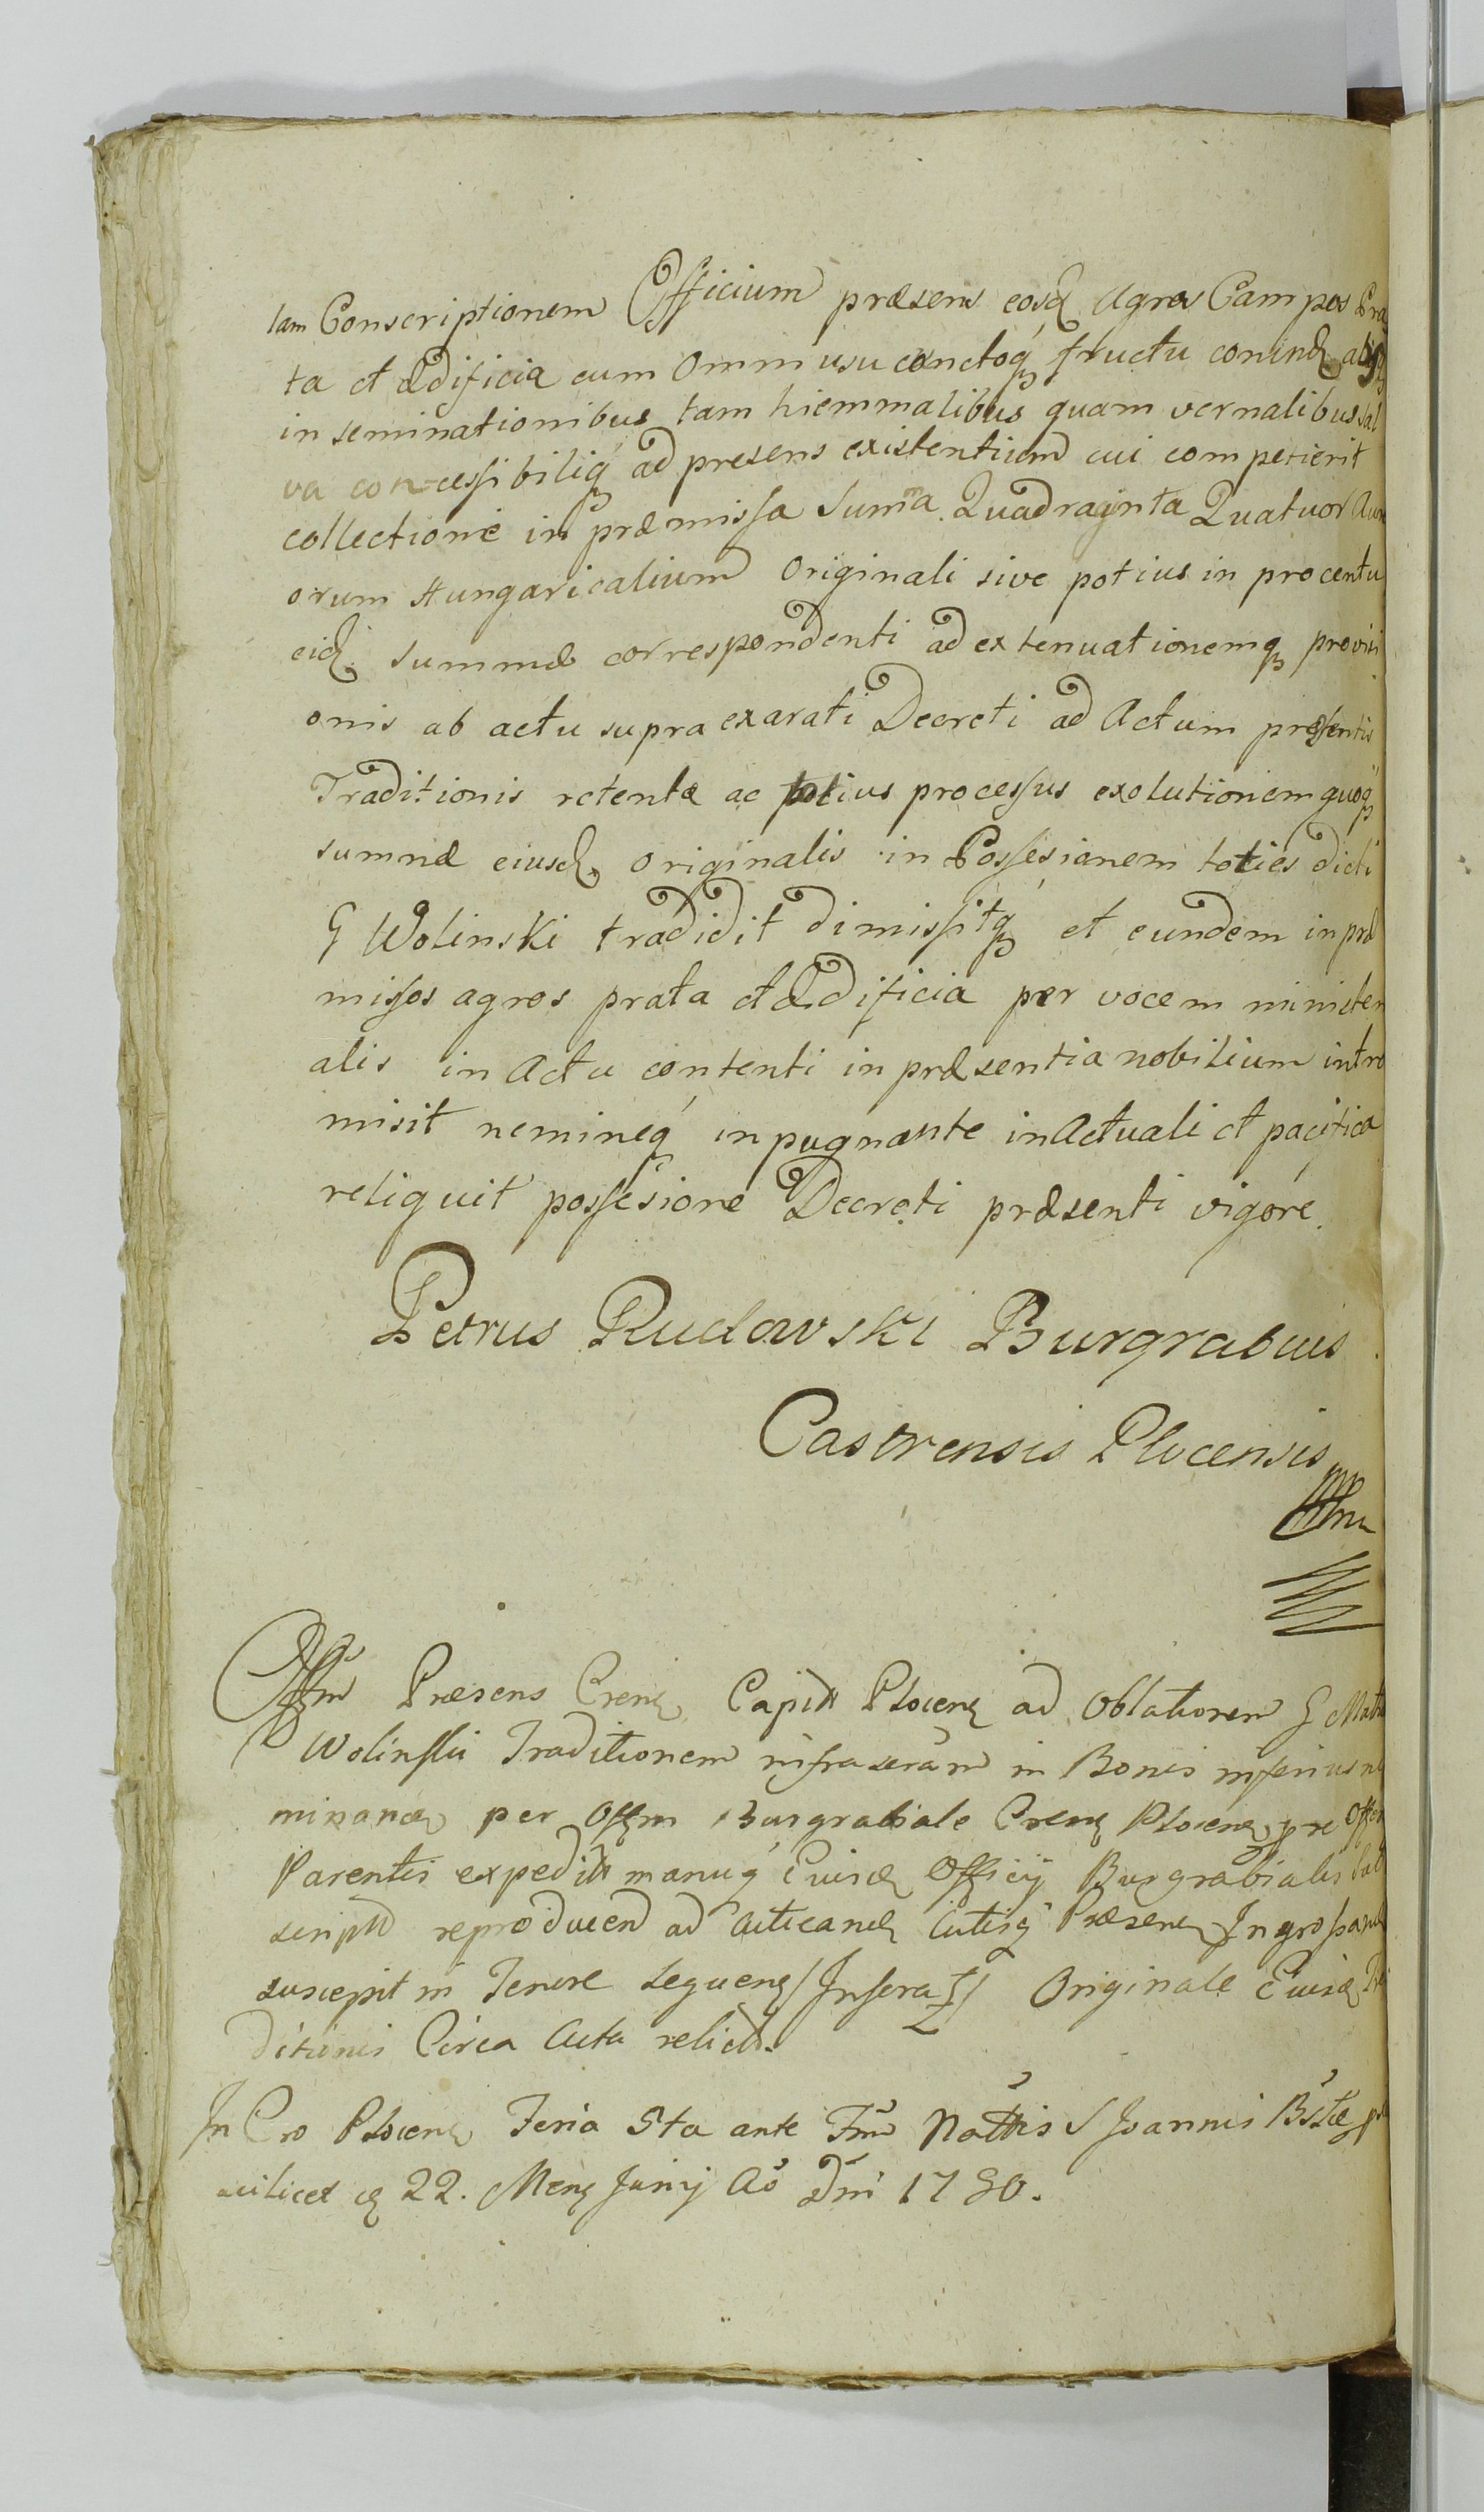 tam Conscriptionem Officium præsens eosq Agros Campos Pra
ta et Ædificia cum Omni usu cunctoq fructu conind
in seminationibus tam hiemmalibus quam vernalibus sal
va concessibiliq ad presens existentium cui competierit
collectione in præmissa Summa Quadraginta Quatuor Aure
orum Hungaricalium Originali sive potius in procentu
eid. summæ correspondenti ad extenuationemq provisi
onis ab actu supra exarati Decreti ad Actum presentis
Traditionis retentæ ac potius processus exolutionem quoq
sumnæ eiusd. originalis in Possesionem toties dicti
G Wolinski tradidit dimissitq et eundem in præ
missos agros prata et Ædificia per vocem ministeri
alis in Actu contenti in præsentia nobilium intro
misit nemineq inpugnante in Actuali et pacifica
reliquit possesione Decreti præsenti vigore.
Petrus Rudowski Burgrabius
Castrensis Plocensis
mp
Offm Præsens Crens Capitt Plocens ad Oblationem G Math
Wolinskii Traditionem infrascram in Bonis inferius no
minand per Offm Burgrabiale Crens Plocens pre Offm
Parentis expeditt manuq Eiusd Officij Burgrabialis Sub
scriptt reproducend ad acticand Actisq Præsens Ingrossand
suscepit in Tenore sequens /Inserat/ Originale Eiusd Tra
ditionis Circa Acta relictt.
In Cro Plocens Feria 5ta ante Fm Nattis S Joannis Bstæ
scilicet d 22. Mens Junij Ao Dni 1780.